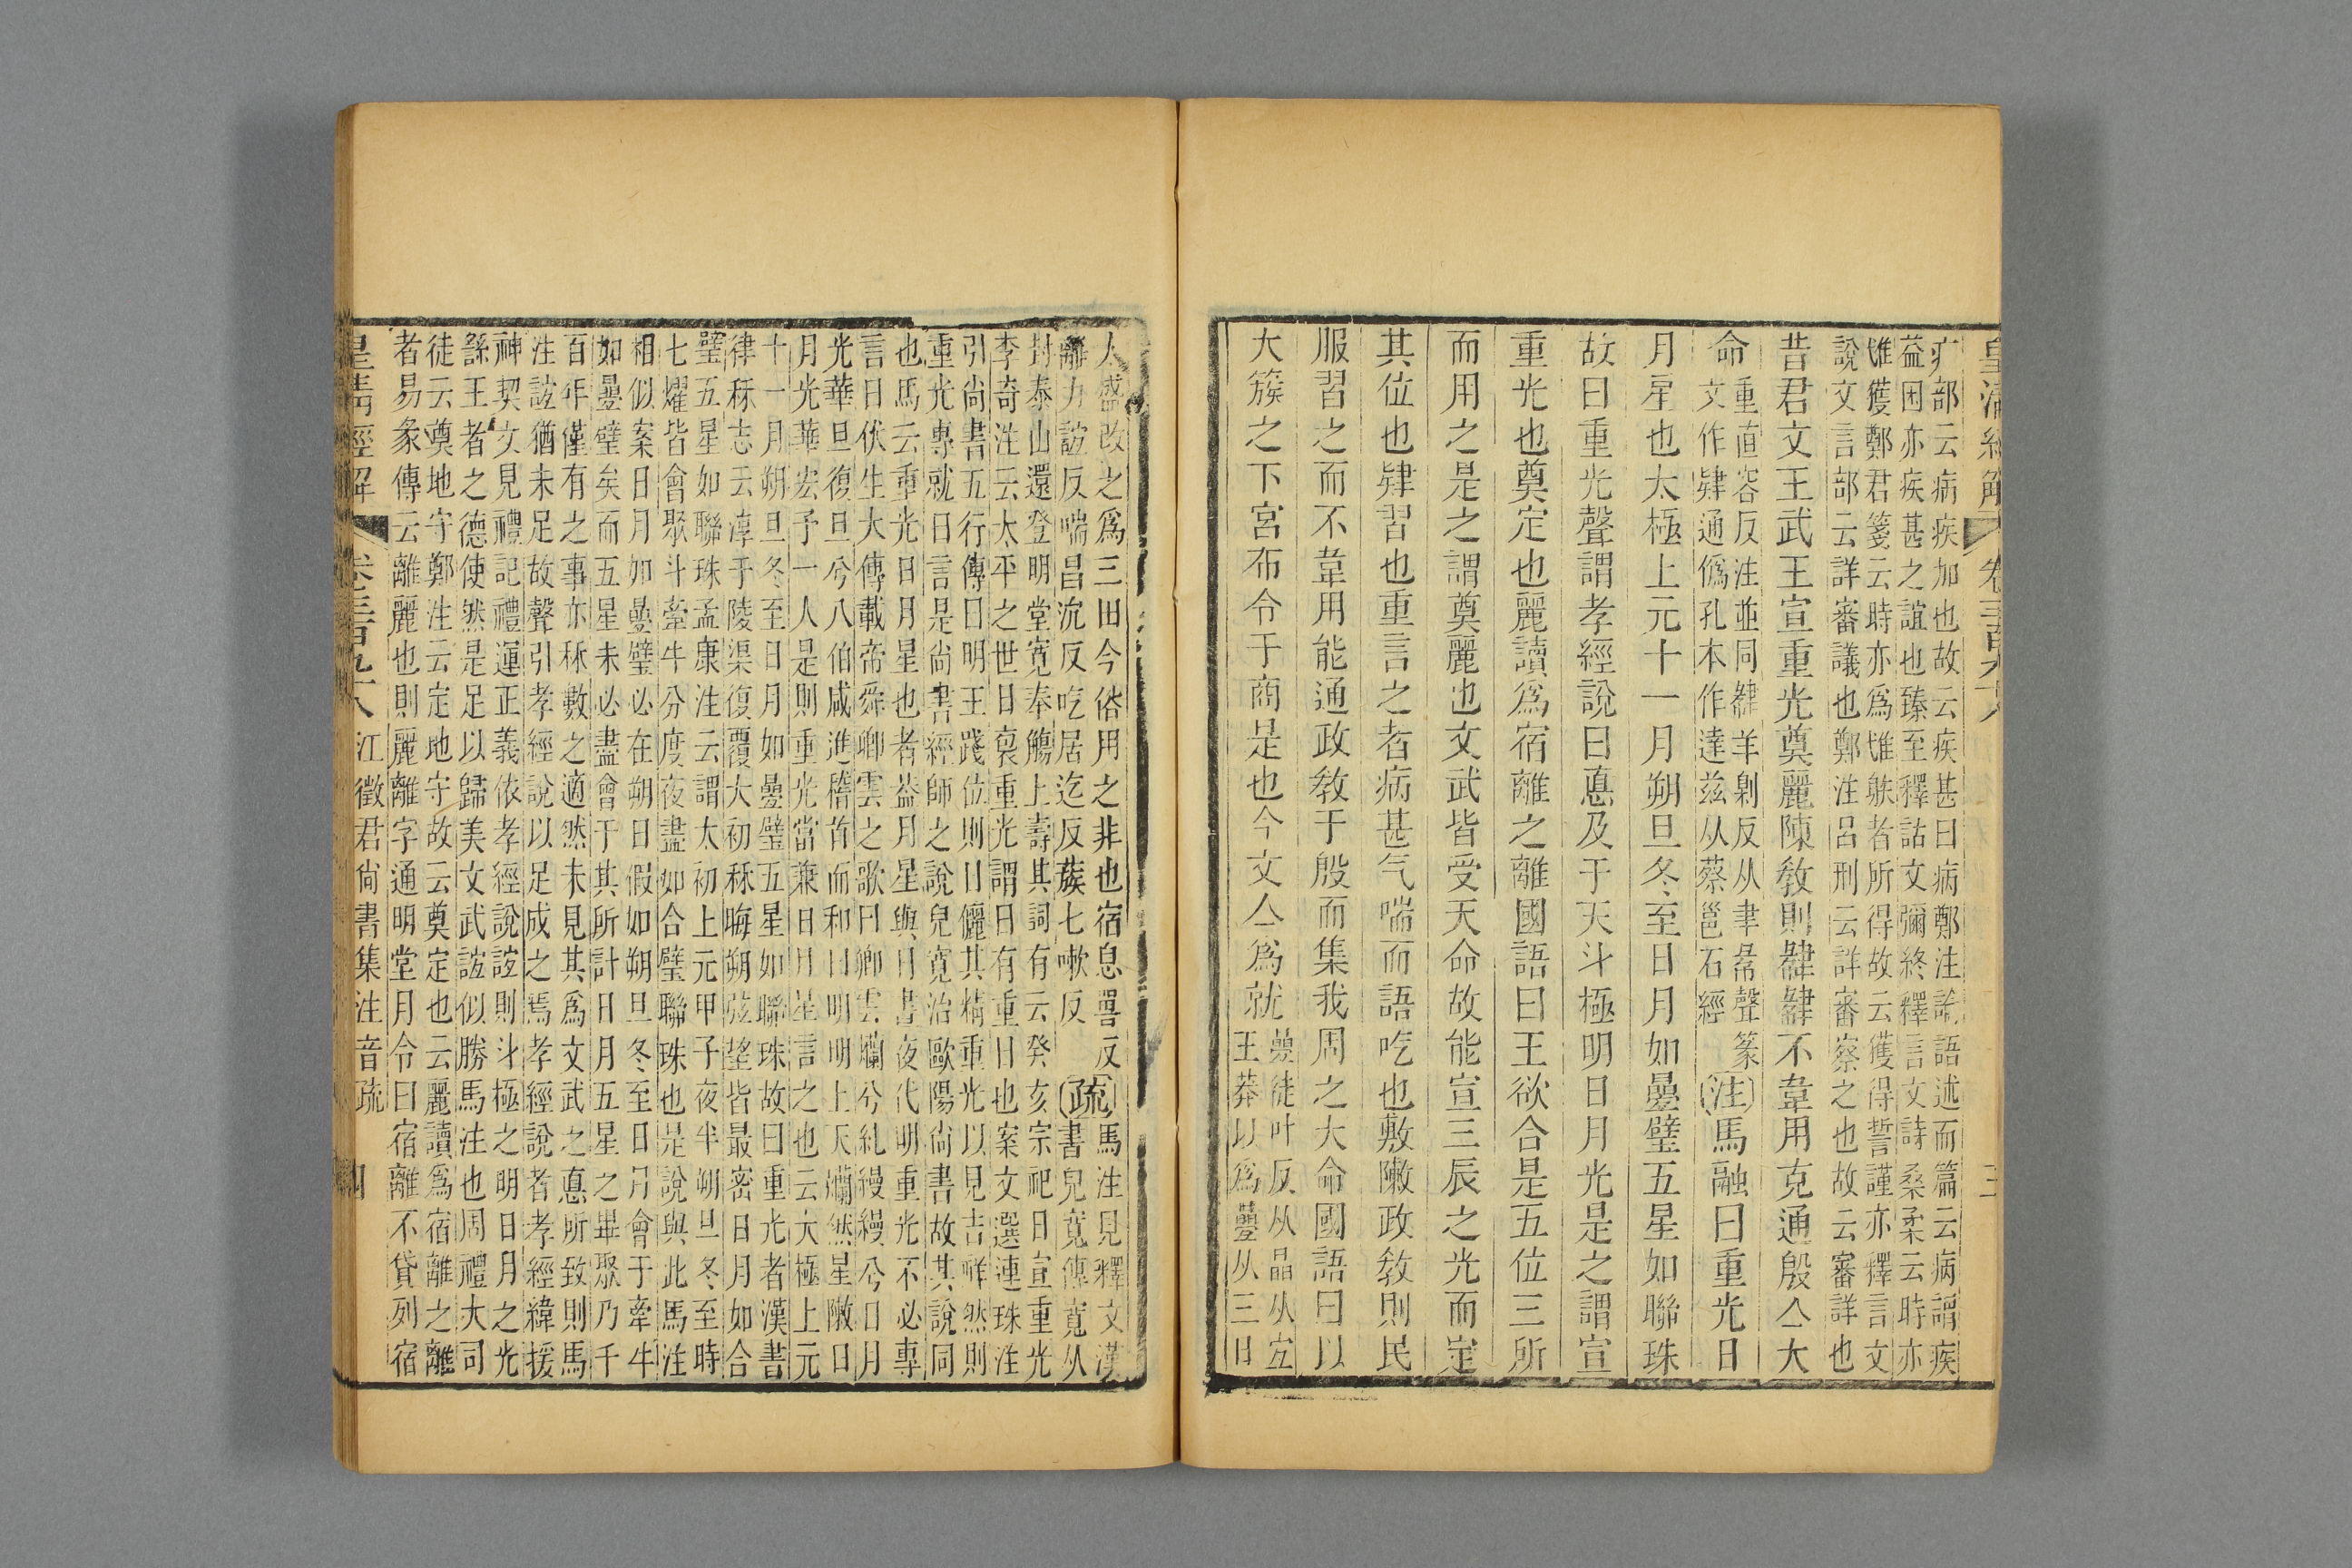 皇清經解 卷三百九十八 三
疒部云病疾加也故云疾甚曰病鄭注論語述而篇云病謂疾
益困亦疾甚之誼也臻至釋詁文彌終釋言文詩桑柔云時亦
惟獲鄭君箋云時亦爲惟躲者所得故云獲得誓謹亦釋言文
說文言部云詳審議也鄭注呂刑云詳審察之也故云審詳也
昔君文王武王宣重光奠麗陳敎則肄肄不韋用克通殷亼大
命
重直容反注並同肄羊剝反从聿㣇聲篆
文作肄通僞孔本作達茲从蔡邕石經
注馬融曰重光日
月星也太極上元十一月朔旦冬至日月如曡璧五星如聯珠
故曰重光聲謂孝經說曰悳及于天斗極明日月光是之謂宣
重光也奠定也麗讀爲宿離之離國語曰王欲合是五位三所
而用之是之謂奠麗也文武皆受天命故能宣三辰之光而定
其位也肄習也重言之者病甚气喘而語吃也敷敶政敎則民
服習之而不韋用能通政敎于殷而集我周之大命國語曰以
大簇之下宮布令于商是也今文亼爲就
曡徒叶反从晶从宜
王莽以爲疊从三日
太盛改之爲三田今俗用之非也宿息㗊反疏馬注見釋文漢
離力誼反喘昌沇反吃居迄反蔟七嗽反
書兒寬傳寬从
封泰山還登明堂寬奉觴上壽其詞有云癸亥宗祀日宣重光
李奇注云太平之世日裒重光謂日有重日也案文選連珠注
引尙書五行傳曰明王踐位則日儷其精重光以見吉祥然則
重光專就日言是尙書經師之說兒寬治歐陽尙書故其說同
也馬云重光日月星也者葢月星與日晝夜代明重光不必專
言日伏生大傳載帝舜卿雲之歌曰卿雲爛兮糺縵縵兮日月
光華旦復旦兮八伯咸進稽首而和曰明明上天爛然星敶日
月光華宏予一人是則重光當兼日月星言之也云大極上元
十一月朔旦冬至日月如曡璧五星如聯珠故曰重光者漢書
律秝志云淳于陵渠復覆大初秝晦朔弦望皆最密日月如合
璧五星如聯珠孟康注云謂太初上元甲子夜半朔旦冬至時
七燿皆會聚斗牽牛分度夜盡如合璧聯珠也是說與此馬注
相似案日月如曡璧必在朔日假如朔旦冬至日月會于牽牛
如曡璧矣而五星未必盡會于其所計日月五星之畢聚乃千
百年僅有之事亦秝數之適然未見其爲文武之悳所致則馬
注誼猶未足故聲引孝經說以足成之焉孝經說者孝經緯援
神契文見禮記禮運正義依孝經說誼則斗極之明日月之光
繇王者之德使然是足以歸美文武誼似勝馬注也周禮大司
徒云奠地守鄭注云定地守故云奠定也云麗讀爲宿離之離
者易彖傳云離麗也則麗離字通明堂月令曰宿離不貸列宿
皇淸經解 卷三百九十八 江徵君尙書集注音疏 四